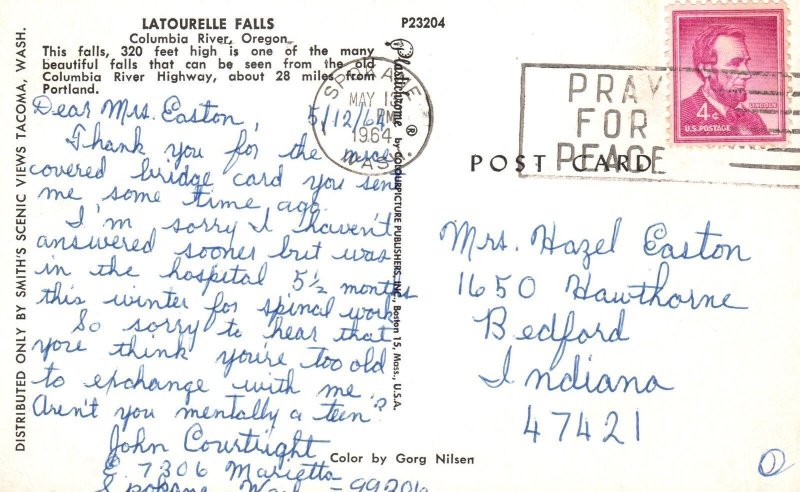 LATOURELLE FALLS
Columbia River, Oregon
This falls, 320 feet high is one of the many
beautiful falls that can be seen from the old
Columbia River Highway, about 28 miles from
Portland.
P23204
DISTRIBUTED ONLY BY SMITH'S SCENIC VIEWS TACOMA, WASH.
Plastichrome ® by COLOURPICTURE PUBLISHERS, INC., Boston 15, Mass., U.S.A.
Dear Mrs. Easton, 5/12/64
Thank you for the nice
covered bridge card you sent
me some time ago.
I'm sorry I haven't
answered sooner but was
in the hospital 5½ months
this winter for spinal work.
So sorry to hear that
you think you're too old
to exchange with me.
Aren't you mentally a teen?
John Courtright
E. 7306 Marietta
Spokane, Wash - 99206
SPOKANE
MAY 13
PM
1964
WASH.
PRAY
FOR
PEACE
4¢
LINCOLN
U.S. POSTAGE
POST CARD
Mrs. Hazel Easton
1650 Hawthorne
Bedford
Indiana
47421
Color by Gorg Nilsen